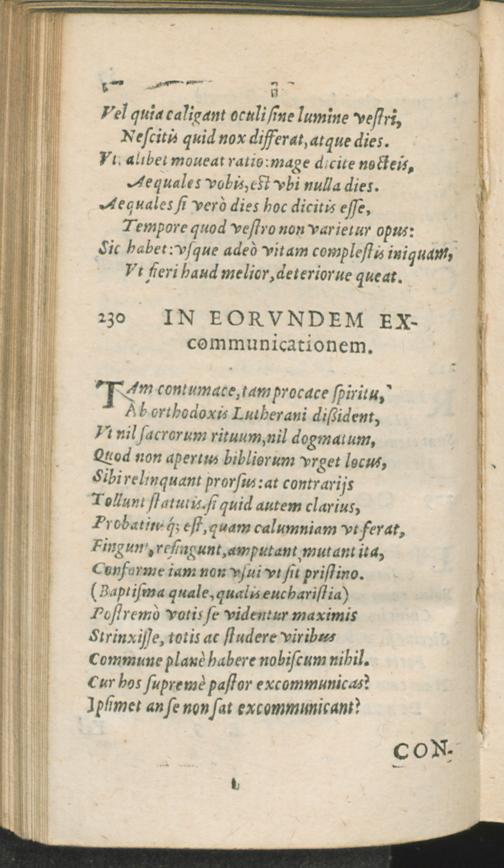 Vel quia caligant oculi sine lumine vestri,
Nescitis quid nox differat, atque dies.
Vt. alibet moueat ratio: mage dicite nocteis,
Aequales vobis, est vbi nulla dies.
Aequales si verò dies hoc dicitis esse,
Tempore quod vestro non varietur opus:
Sic habet: vsque adeò vitam complestis iniquam,
Vt fieri haud melior, deteriorue queat.
230 IN EORVNDEM EX-
communicationem.
TAm contumace, tam procace spiritu,
Ab orthodoxis Lutherani dißident,
Vt nil sacrorum rituum, nil dogmatum,
Quod non apertus bibliorum vrget locus,
Sibi relinquant prorsus: at contrarijs
Tollunt statutis. si quid autem clarius,
Probatiusq́; est, quam calumniam vt ferat,
Fingunt, refingunt, amputant mutant ita,
Conforme iam non vsui vt sit pristino.
(Baptisma quale, qualis eucharistia)
Postremò votis se videntur maximis
Strinxisse, totis ac studere viribus
Commune planè habere nobiscum nihil.
Cur hos supremè pastor excommunicas?
Ipsimet an se non sat excommunicant?
CON-